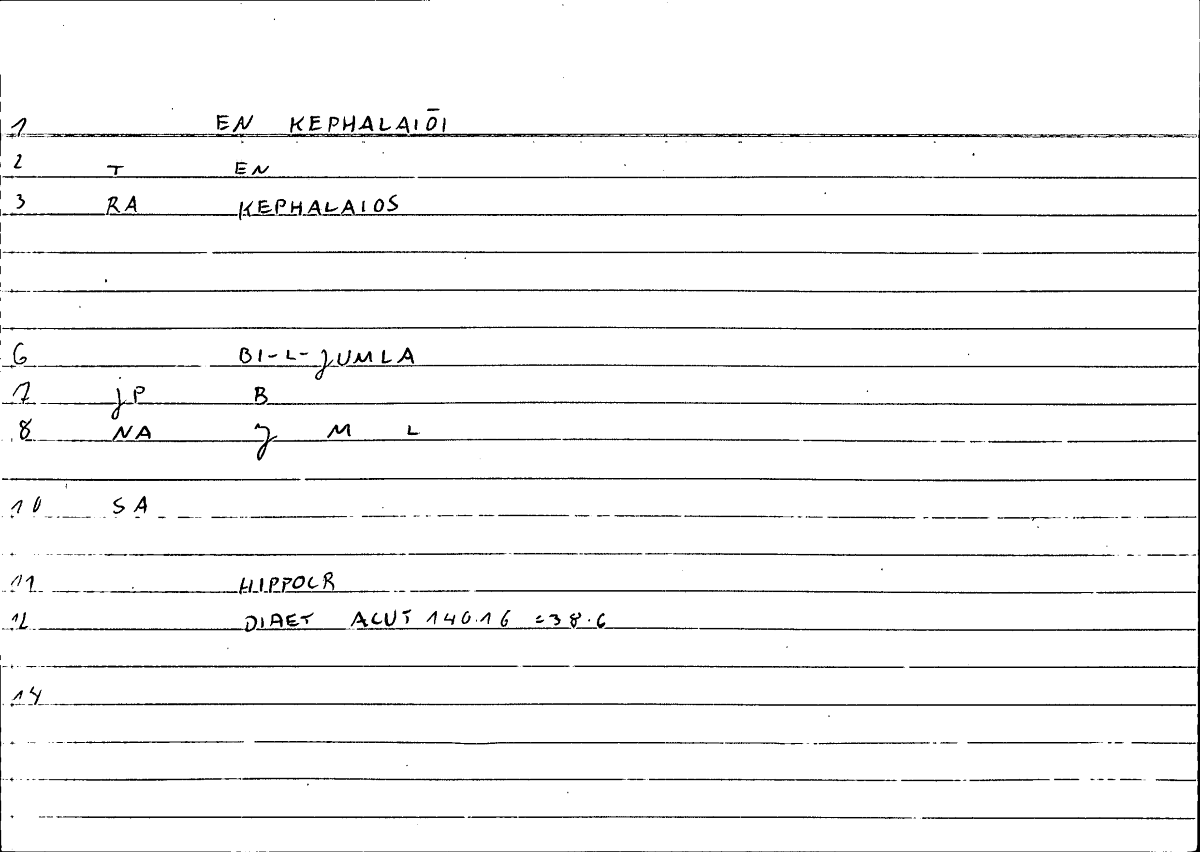 1 EN KEPHALAIŌI
2 T EN
3 RA KEPHALAIOS
6 BI-L-JUMLA
7 JP B
8 NA J M L
10 SA
11 HIPPOCR
12 DIAET ACUT 140.16 =38.6
14